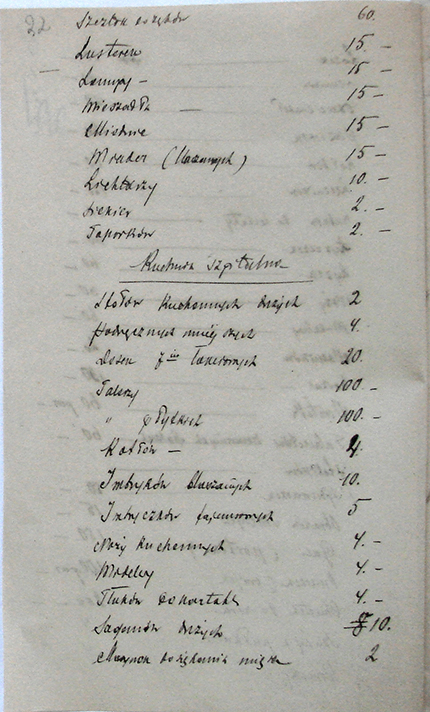 22
Szczotek do zębów 60.
Lusterek 15. –
Lampy – 15 –
Mieszadło – 15 –
Miednic 15 –
Wiader (blaszanych) 15 –
Lichtarzy 10. –
Siekier 2. –
Toporków 2. –
Kuchnia szpitalna
Stołów kuchennych dużych 2
podręcznych mniejszych 4.
20.
Talerzy 100 –
" płytkich 100. –
Kotłów – 4.
Imbryków blaszanych 10.
Imbryczków fajansowych 5
Noży kuchennych 4. –
4. –
Tłuków do kartofli 4 –
Saganów dużych 10.
do siekania mięsa 2